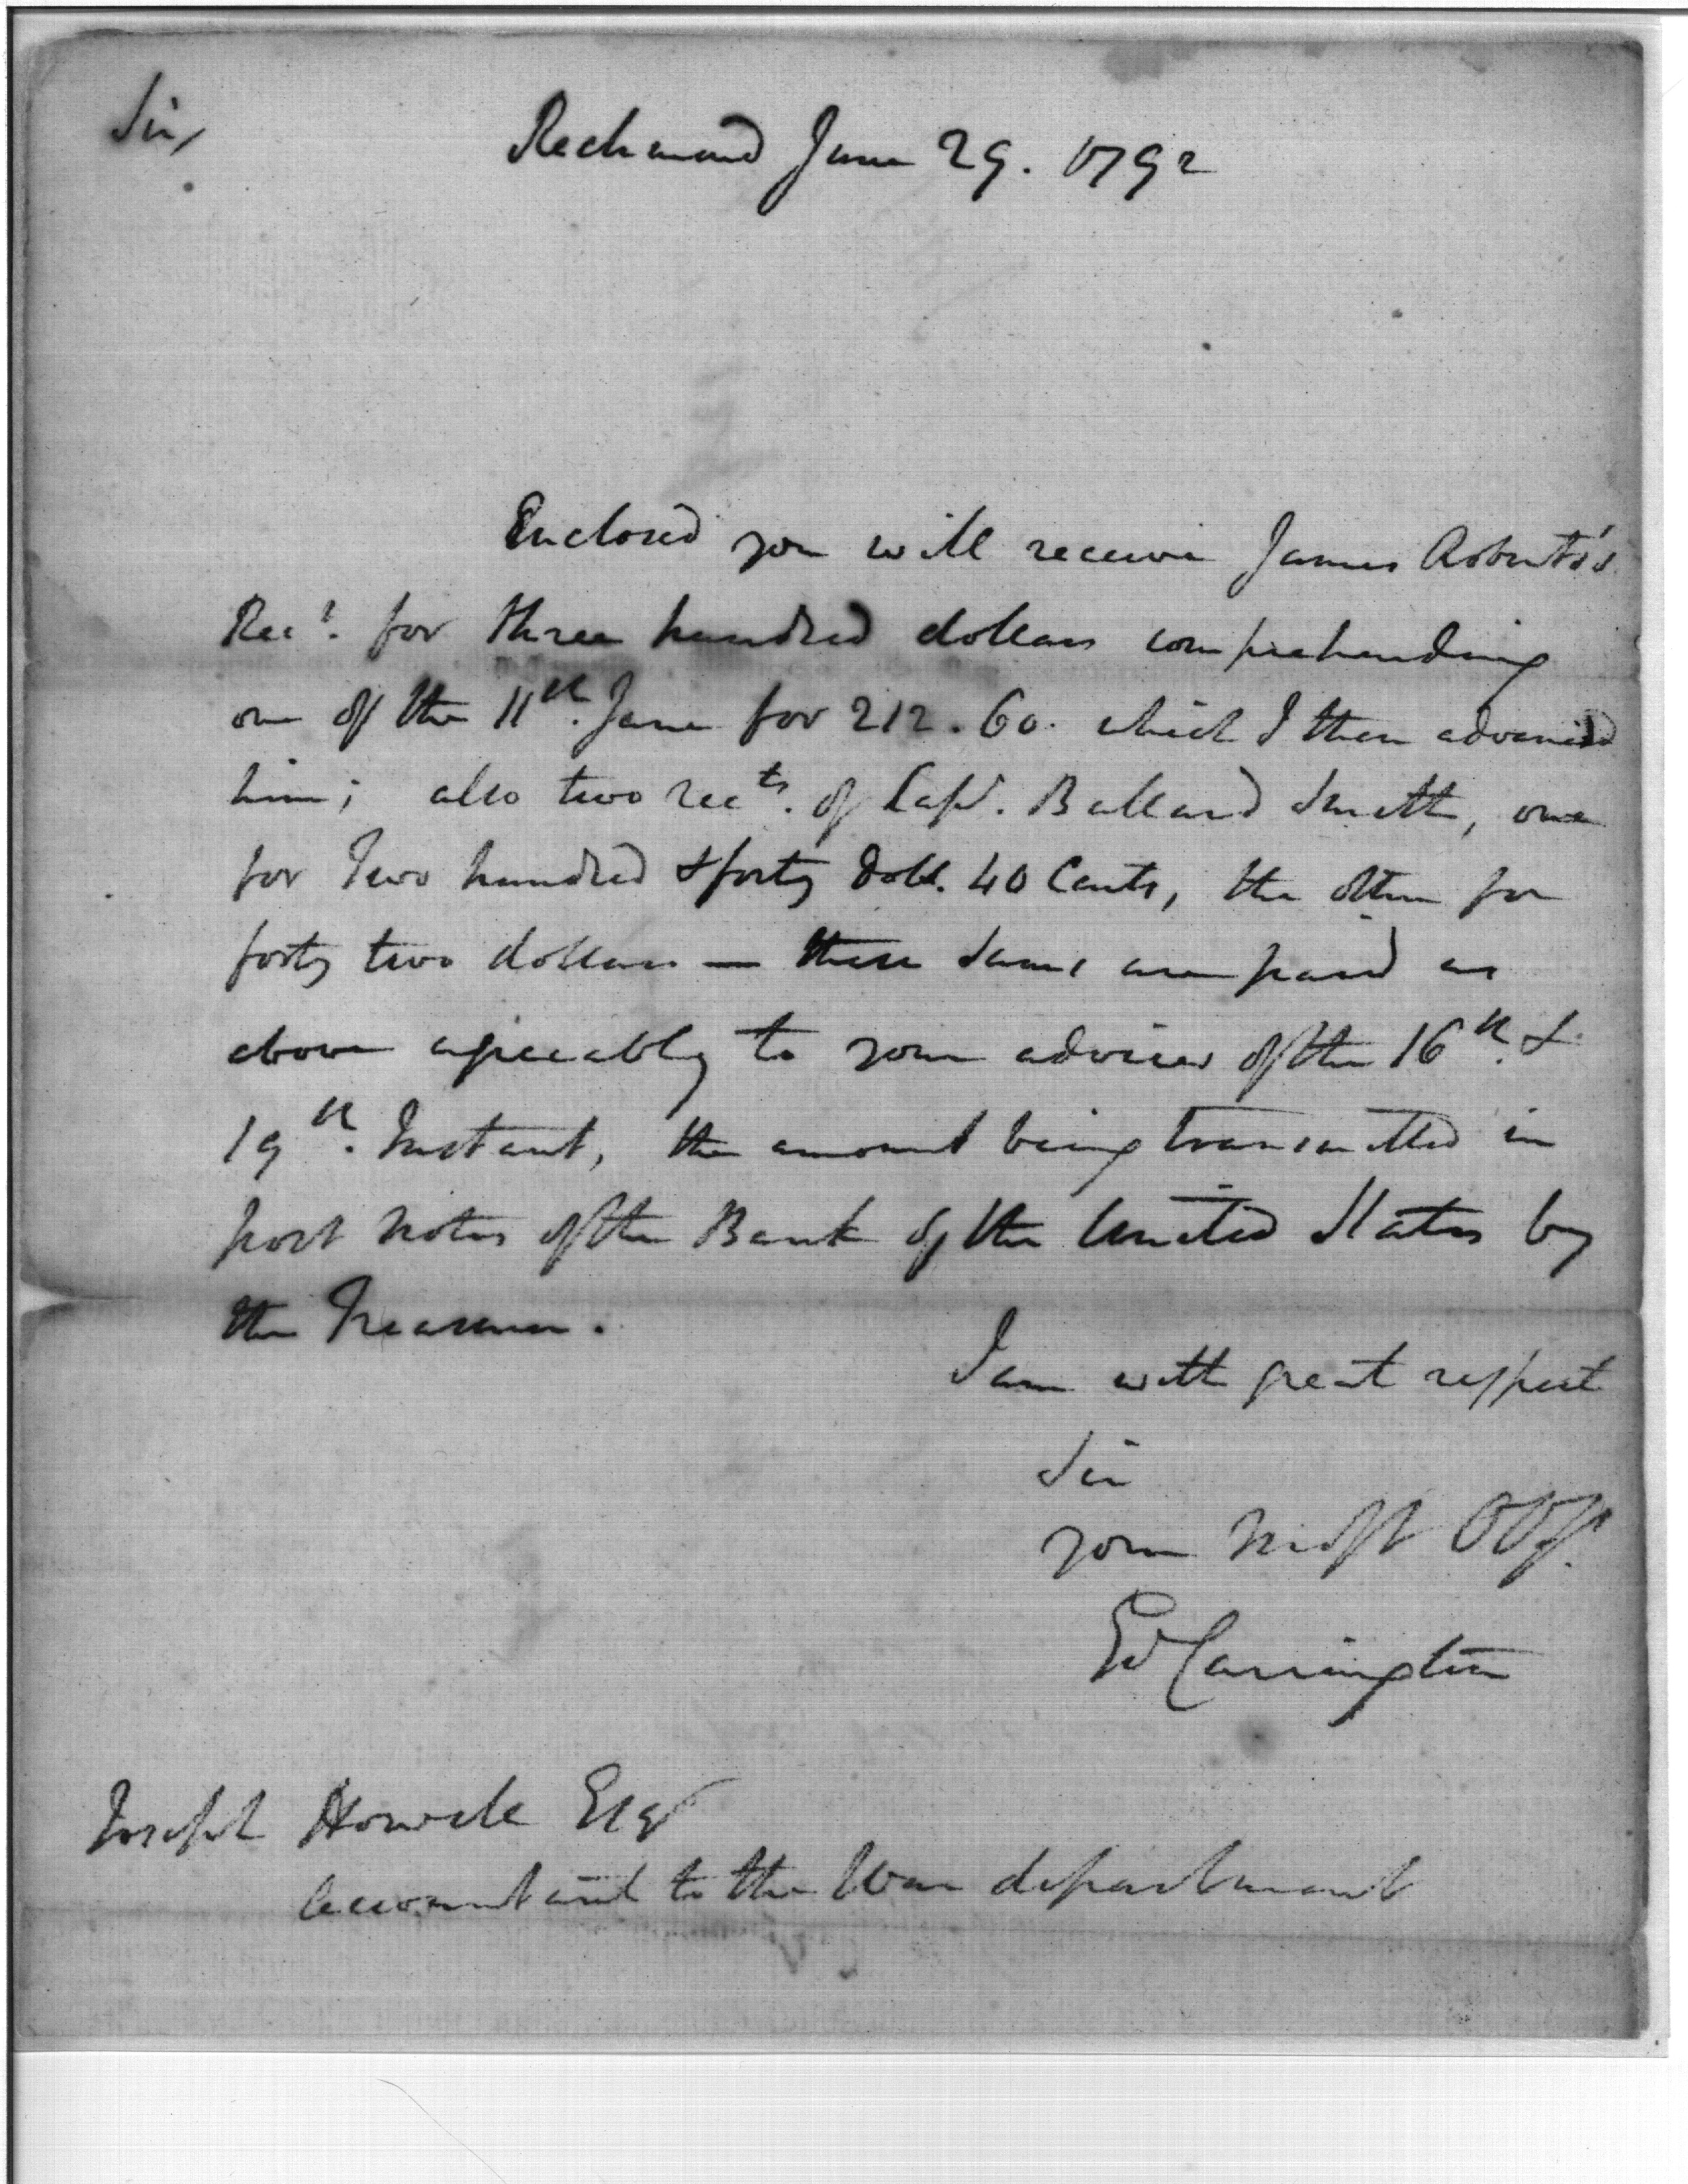 Sir,
Richmond June 29. 1792
Enclosed you will receive James
Rect. for three hundred dollars comprehending
one of the 11th. June for 212.60. which I then advanced
him; also two recots. of Capt. Ballard Smith, one
for Two hundred & forty Dolls. 40 Cents, the other for
forty two dollars — these sums are paid as
above agreeably to your advices of the 16th. &
19th. Instant, the amount being transmitted in
post notes of the Bank of the United States by
the Treasurer.
I am with great respect
Sir
your most Obt.
Ed Carrington
Joseph Howell Esqr
Accountant to the War department